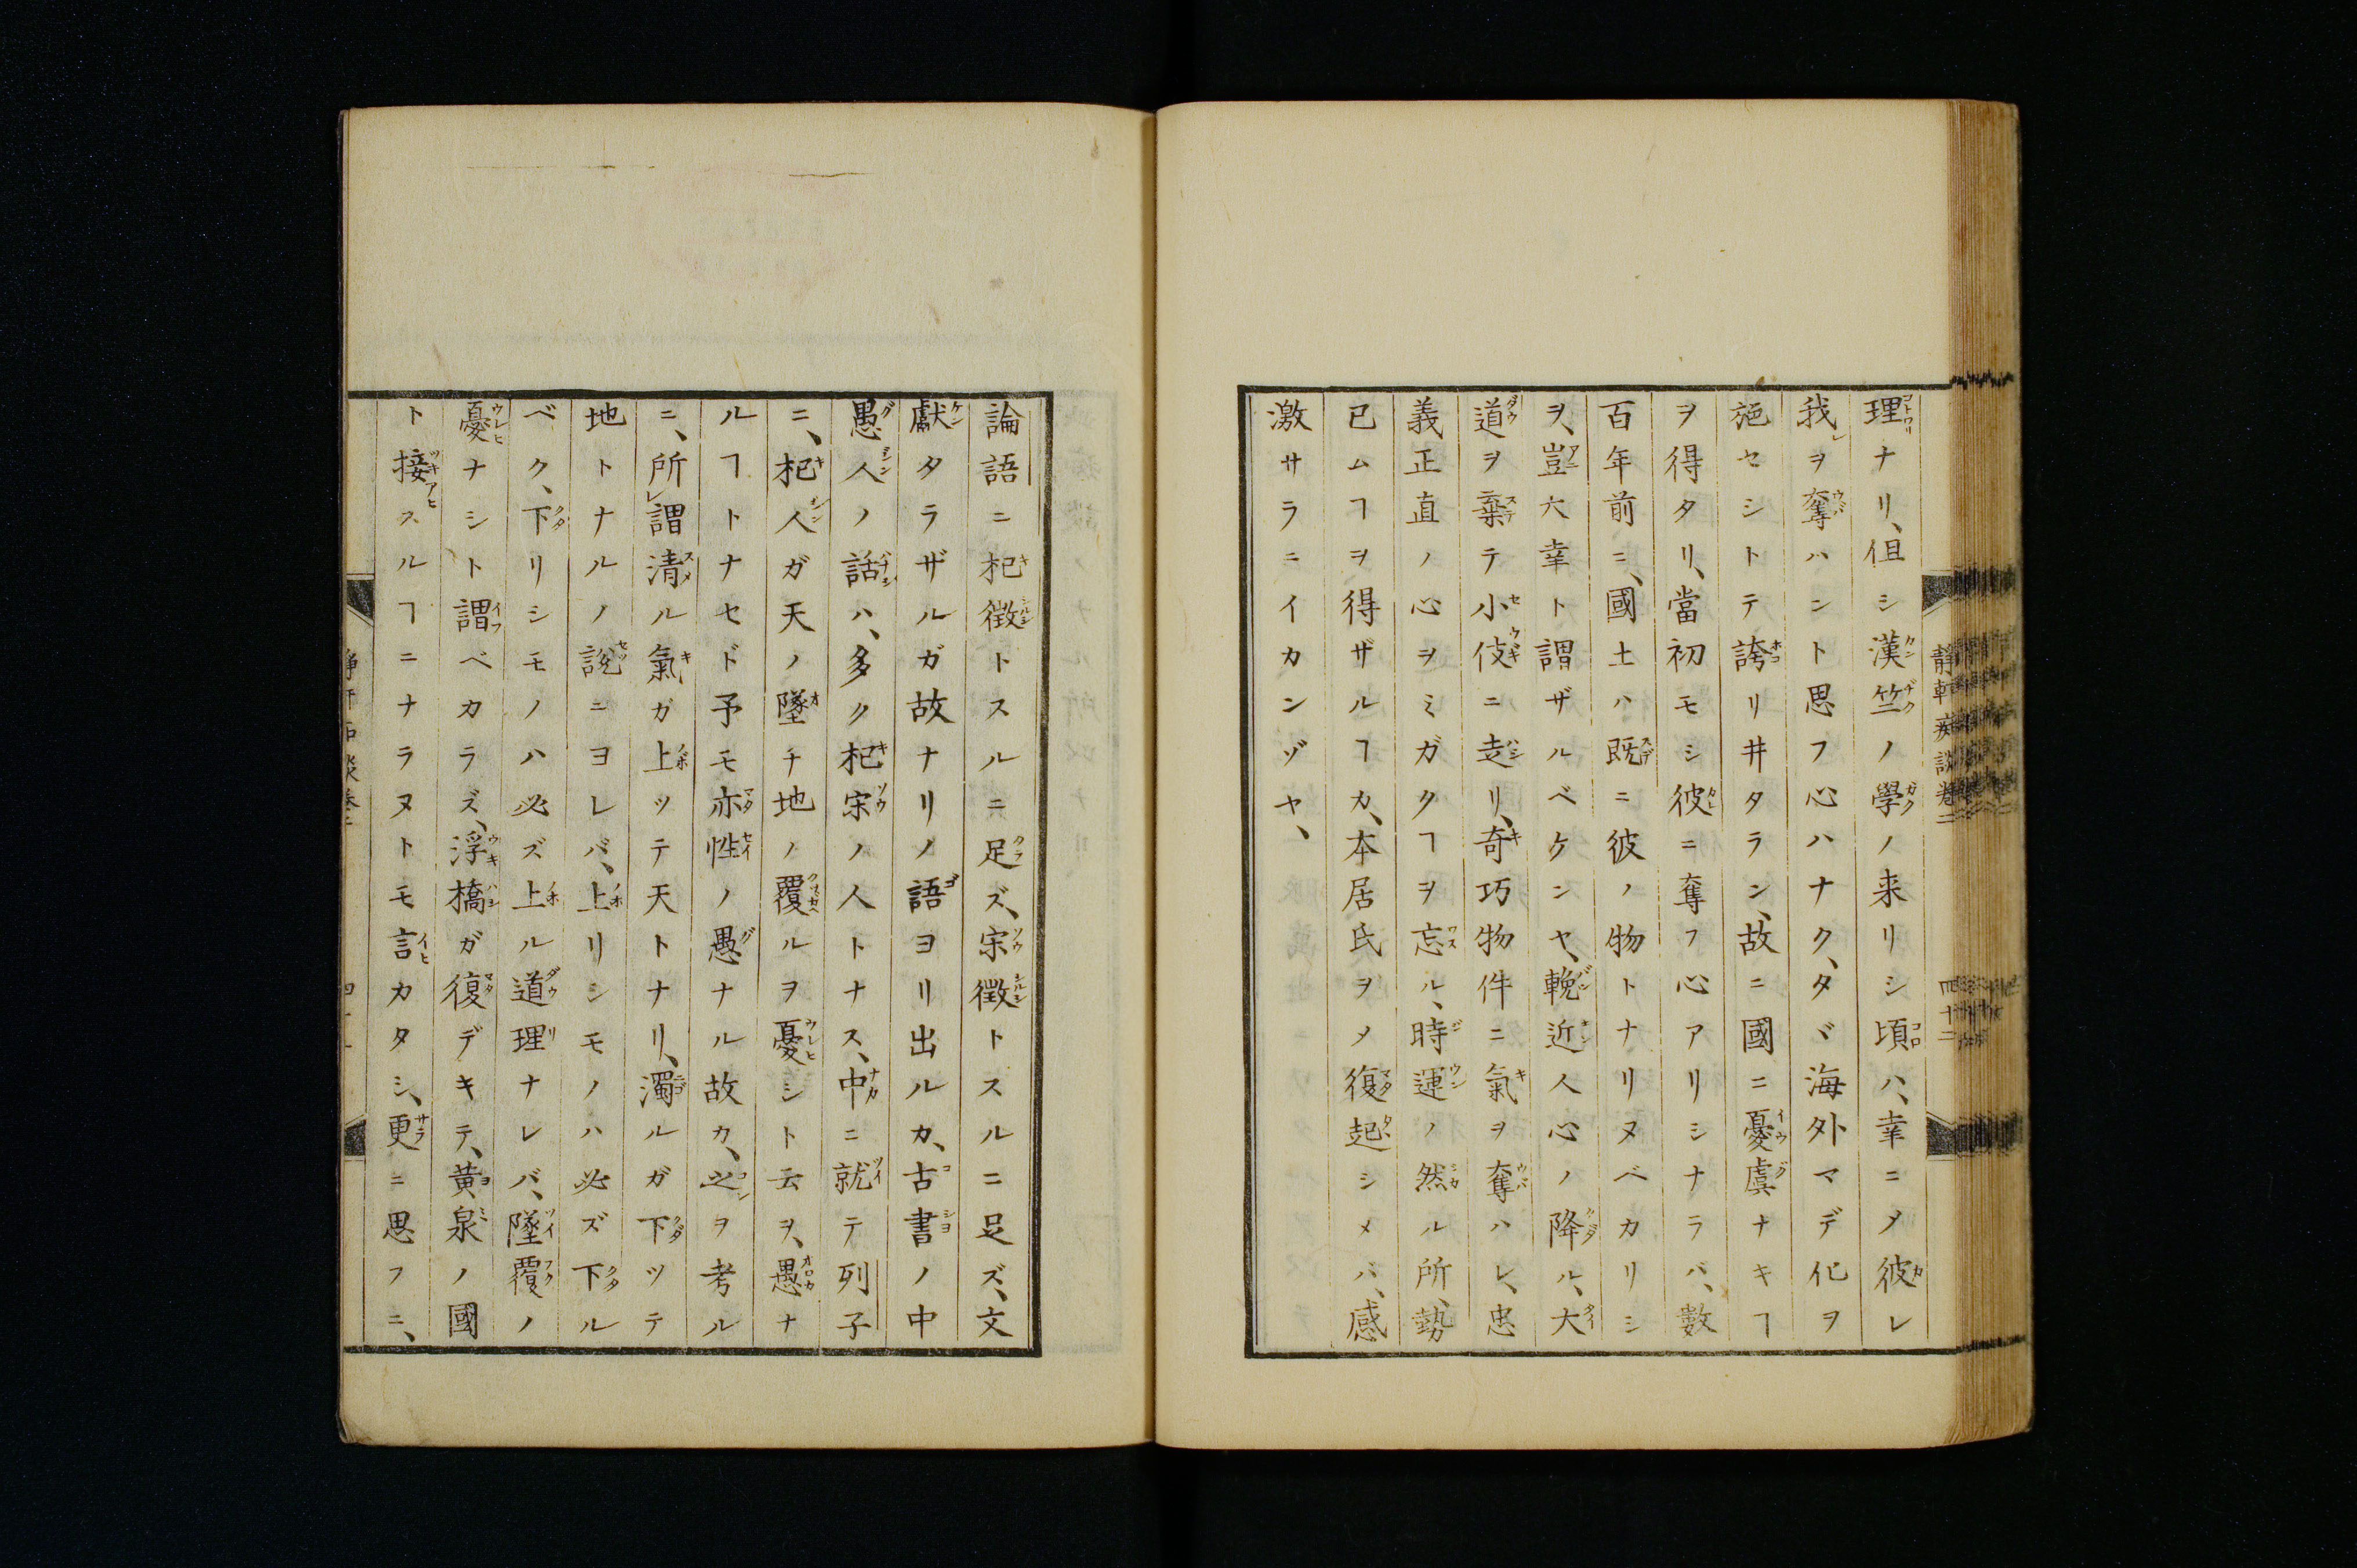 理ナリ、但シ漢竺ノ學ノ来リシ頃ハ、幸ニメ彼レ
我ヲ奪ハント思フ心ハナク、タヾ海外マデ化ヲ
施セシトテ誇リ井タラン、故ニ國ニ憂虞ナキヿ
ヲ得タリ、當初モシ彼ニ奪フ心アリシナラバ、數
百年前ニ、國土ハ既ニ彼ノ物トナリヌベカリシ
ヲ、豈大幸ト謂ザルベケンヤ、輓近人心ノ降ル、大
道ヲ棄テ小伎ニ走リ、奇巧物件ニ氣ヲ奪ハレ、忠
義正直ノ心ヲミガクヿヲ忘ル、時運ノ然ル所、勢
已ムヿヲ得ザルヿカ、本居氏ヲメ復起シメバ、感
激サラニイカンヅヤ、
靜軒痴談卷二
四十二
論語ニ杞徴トスルニ足ズ、宋徴トスルニ足ズ、文
獻タラザルガ故ナリノ語ヨリ出ルカ、古書ノ中
愚人ノ話ハ、多ク杞宋ノ人トナス、中ニ就テ列子
ニ、杞人ガ天ノ墜チ地ノ覆ルヲ憂シト云ヲ、愚ナ
ルヿトナセド予モ亦性ノ愚ナル故カ、之ヲ考ル
ニ、所謂清ル氣ガ上ツテ天トナリ、濁ルガ下ツテ
地トナルノ説ニヨレバ、上リシモノハ必ズ下ル
ベク、下リシモノハ必ズ上ル道理ナレバ、墜覆ノ
憂ナシト謂ベカラズ、浮橋ガ復デキテ、黄泉ノ國
ト接スルヿニナラヌトモ言カタシ、更ニ思フニ、